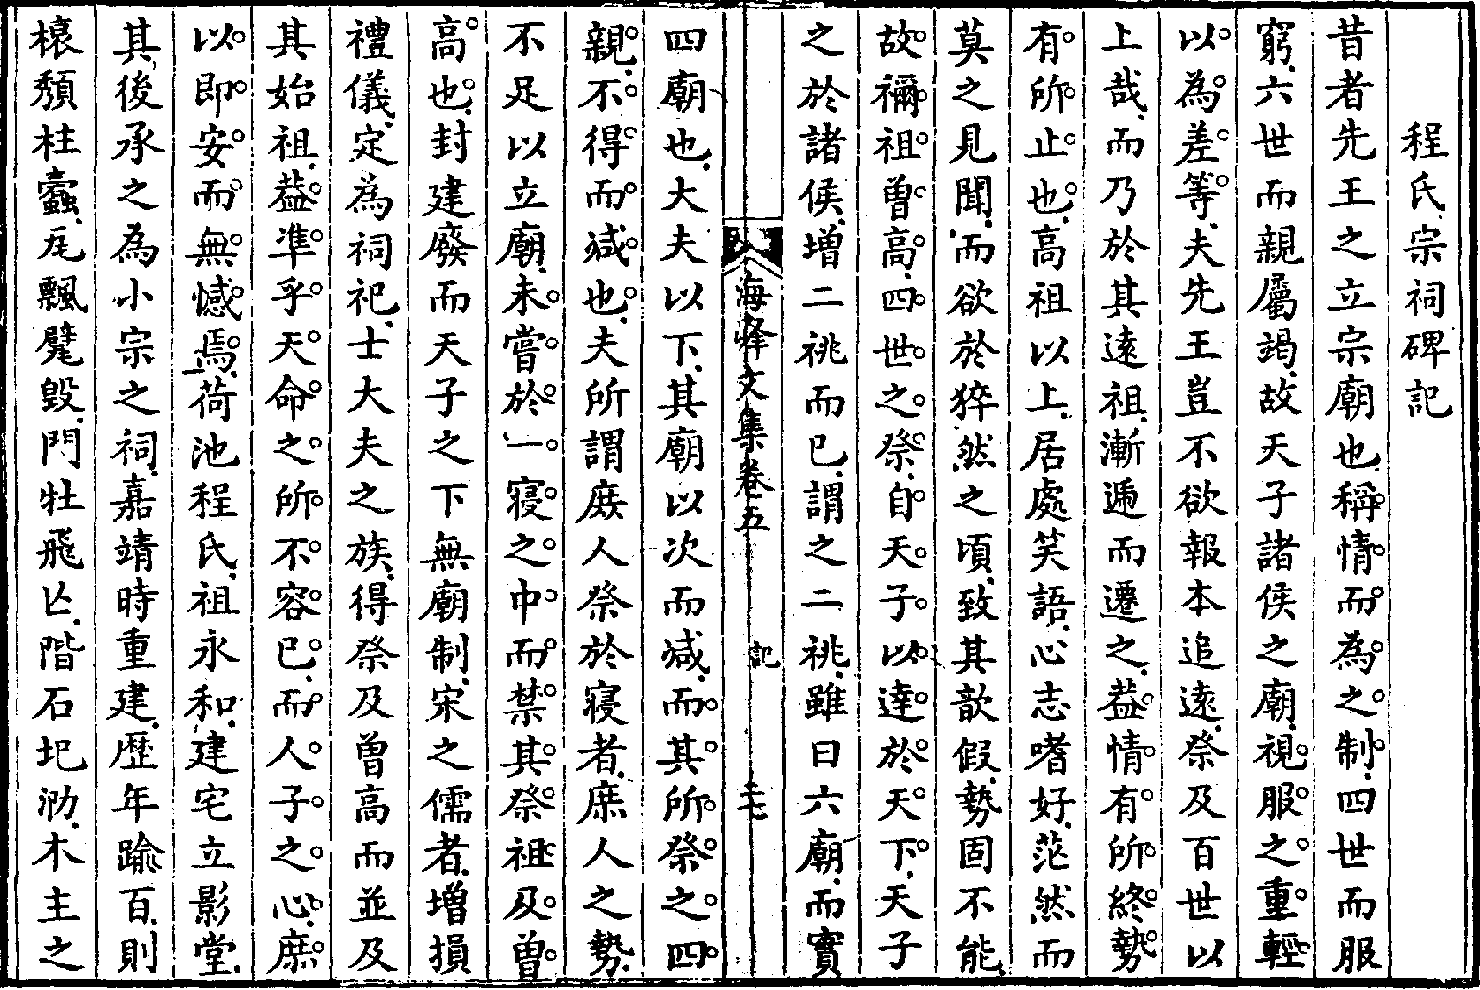 程氏宗祠碑記
昔者先王之立宗廟也稱情而為之制四世而服
窮六世而親屬竭故天子諸侯之廟視服之重輕
以為差等夫先王豈不欲報本追遠祭及百世以
上哉而乃於其遠祖漸遞而遷之葢情有所終勢
有所止也高祖以上居處笑語心志嗜好茫然而
莫之見聞而欲於猝然之頃致其歆假勢固不能
故禰祖曾高四世之祭自天子以達於天下天子
之於諸侯增二祧而已謂之二祧雖曰六廟而實
海峰文集卷五
記
二七
四廟也大夫以下其廟以次而減而其所祭之四
親不得而減也夫所謂庶人祭於寢者庶人之勢
不足以立廟未嘗於一寢之中而禁其祭祖及曾
高也封建廢而天子之下無廟制宋之儒者增損
禮儀定為祠祀士大夫之族得祭及曾高而並及
其始祖葢準乎天命之所不容已而人子之心庶
以即安而無憾焉荷池程氏祖永和建宅立影堂
其後承之為小宗之祠嘉靖時重建歷年踰百則
榱頹柱蠧瓦飄甓毀門牡飛亡階石圮泐木主之